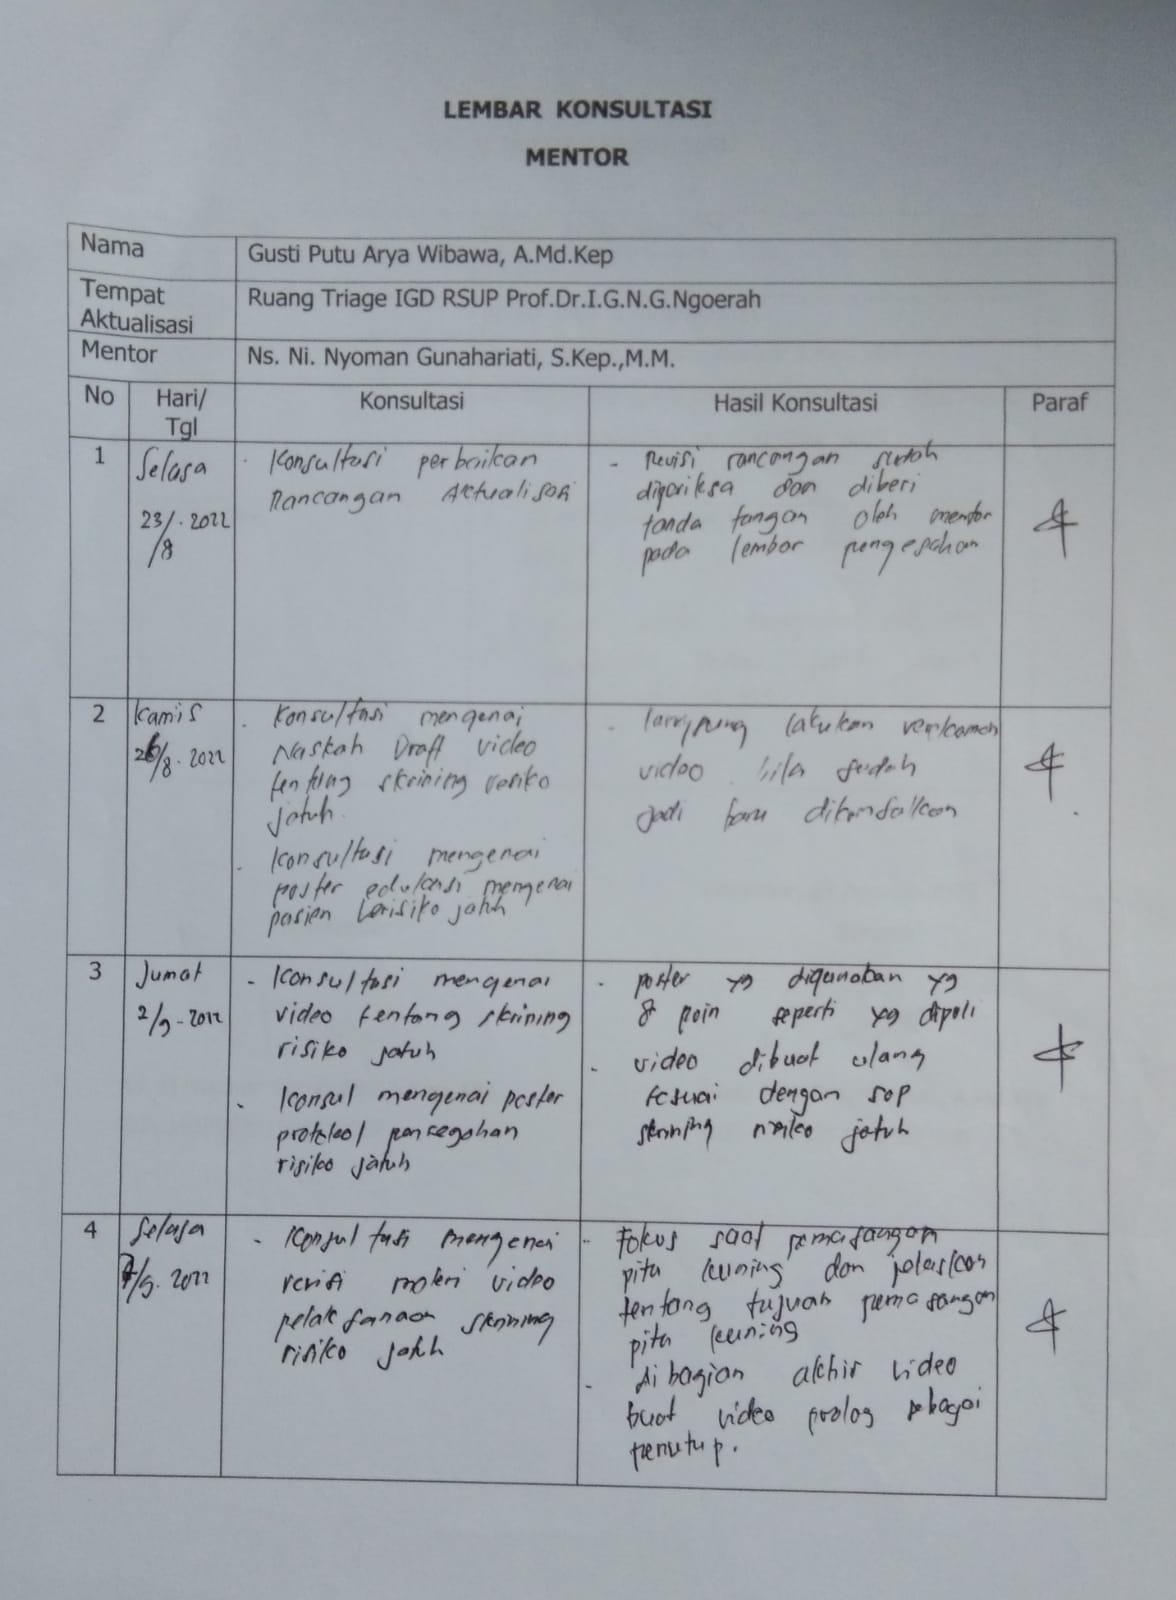 LEMBAR KONSULTASI
MENTOR
Nama
Gusti Putu Arya Wibawa, A.Md.Kep
Tempat
Aktualisasi
Ruang Triage IGD RSUP Prof.Dr.I.G.N.G.Ngoerah
Mentor
Ns. Ni. Nyoman Gunahariati, S.Kep.,M.M.
No
Hari/
Tgl
Konsultasi
Hasil Konsultasi
Paraf
1
Selasa
23/8.2022
- Konsultasi perbaikan
Rancangan Aktualisasi
- Revisi rancangan sudah
diperiksa dan diberi
tanda tangan oleh mentor
pada lembar pengesahan
2
Kamis
/8.2022
- Konsultasi mengenai
Naskah Draft video
tentang skrining resiko
jatuh.
- Konsultasi mengenai
poster edukasi mengenai
pasien berisiko jatuh
- langsung lakukan
video bila sudah
jadi baru
3
Jumat
2/9-2022
- Konsultasi mengenai
video tentang skrining
risiko jatuh
- Konsul mengenai poster
protokol pencegahan
risiko jatuh
- poster yg digunakan yg
8 poin seperti yg dipoli
- video dibuat ulang
sesuai dengan SOP
skrining risiko jatuh
4
Selasa
/9.2022
- Konsultasi mengenai
revisi materi video
pelaksanaan skrining
risiko jatuh
- Fokus saat pemasangan
pita kuning dan jelaskan
tentang tujuan pemasangan
pita kuning
- di bagian akhir video
buat video prolog sebagai
penutup.